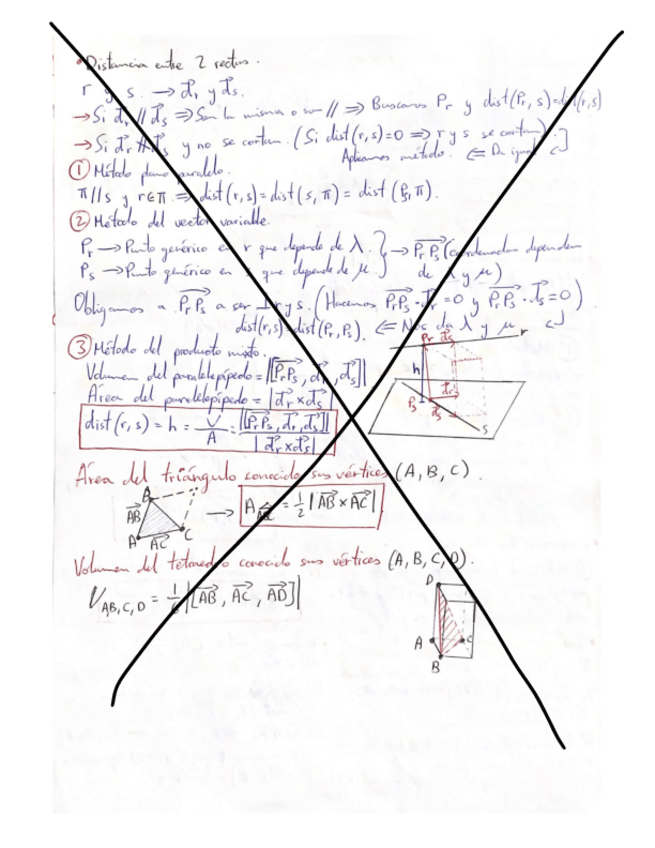 • Distancia entre 2 rectas.
r y s. → d⃗r y d⃗s.
→ Si d⃗r // d⃗s ⇒ Son la misma o son // ⇒ Buscamos Pr y dist(Pr, s) = dist(r,s)
→ Si d⃗r ∦ d⃗s y no se cortan. (Si dist(r,s)=0 ⇒ r y s se cortan).
Aplicamos método. ⇐ Da igual
① Método plano paralelo.
π//s y r∈π. ⇒ dist(r,s) = dist(s,π) = dist(Ps,π).
② Método del vector variable.
Pr → Punto genérico en r que depende de λ.
Ps → Punto genérico en s que depende de μ.
→ PrPs (coordenadas dependen de λ y μ)
Obligamos a PrPs a ser ⊥ r y s. (Hacemos PrPs · d⃗r = 0 y PrPs · d⃗s = 0)
dist(r,s) = dist(Pr, Ps). ⇐ Nos da λ y μ
③ Método del producto mixto.
Volumen del paralelepípedo = |[PrPs, d⃗r, d⃗s]|
Área del paralelepípedo = |d⃗r × d⃗s|
dist(r,s) = h = V/A = |[PrPs, d⃗r, d⃗s]| / |d⃗r × d⃗s|
Pr d⃗s r
h
d⃗r
Ps d⃗s
s
Área del triángulo conocido sus vértices (A, B, C).
B
AB
A AC C
→ A = 1/2 |AB × AC|
Volumen del tetraedro conocido sus vértices (A, B, C, D).
V AB,C,D = 1/6 |[AB, AC, AD]|
D
A C
B